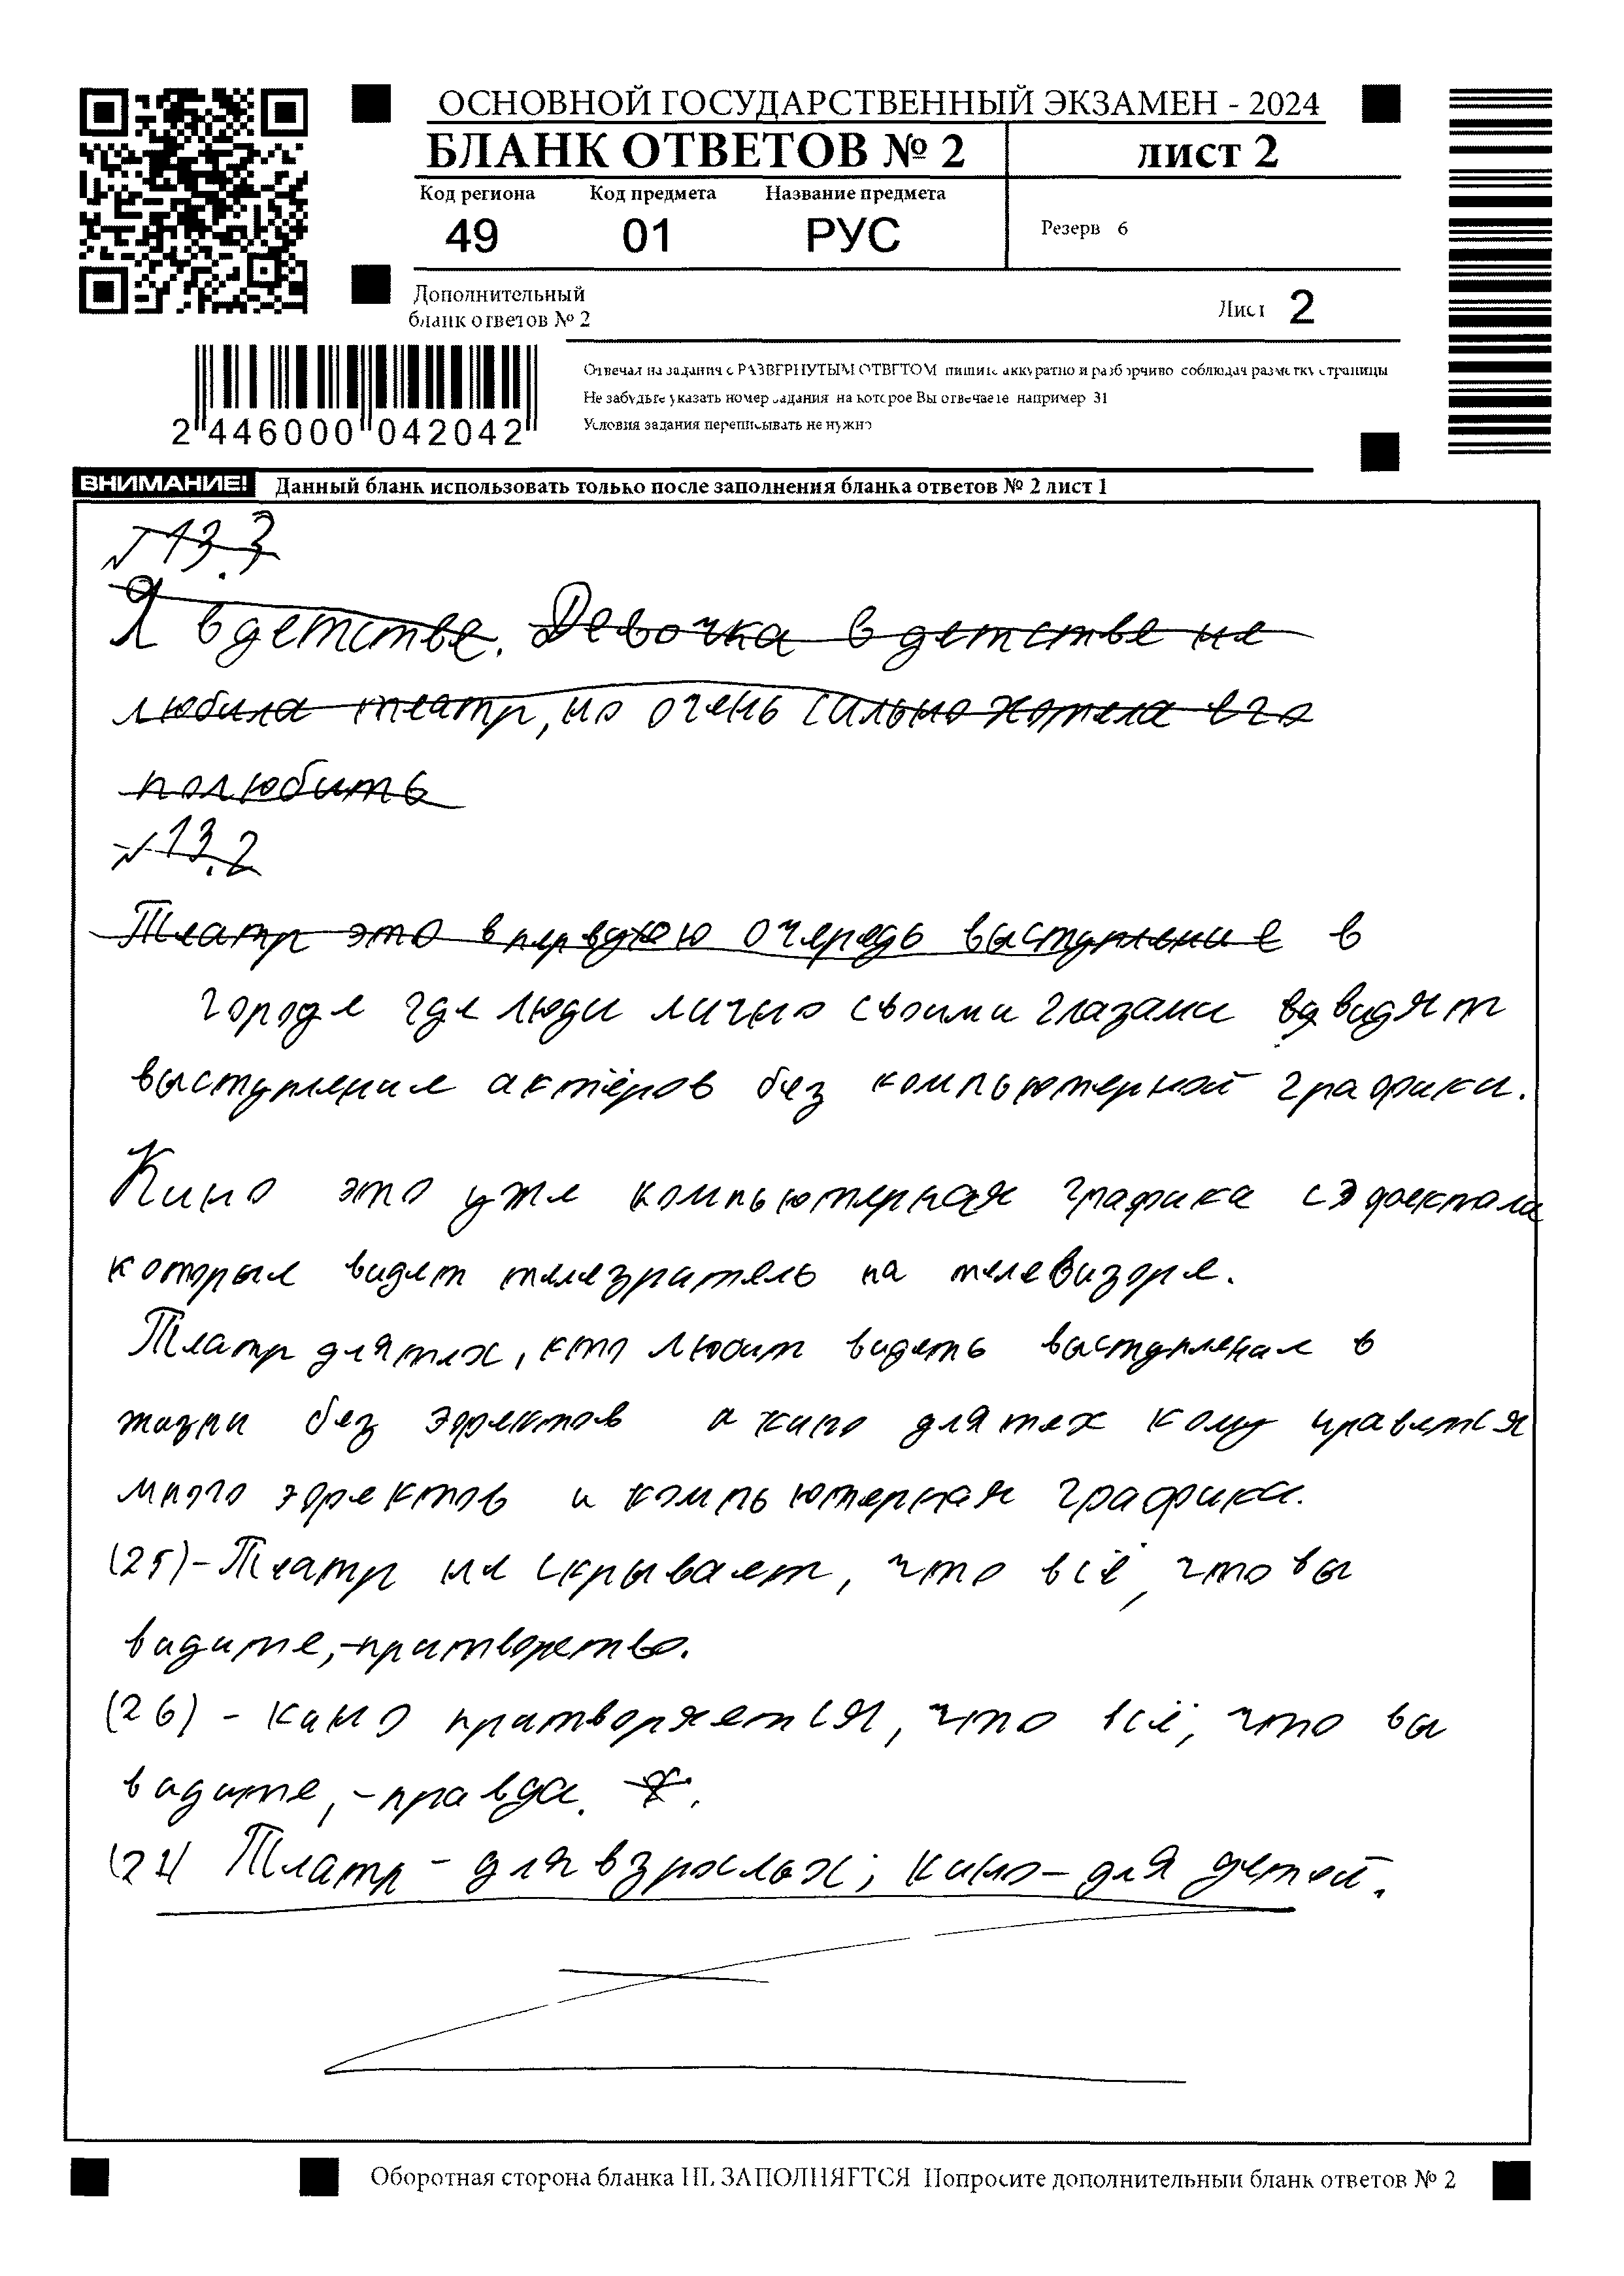 ОСНОВНОЙ ГОСУДАРСТВЕННЫЙ ЭКЗАМЕН - 2024
БЛАНК ОТВЕТОВ № 2 лист 2
Код региона Код предмета Название предмета
49 01 РУС Резерв 6
Дополнительный
бланк ответов № 2 Лист 2
Отвечая на задания с РАЗВЕРНУТЫМ ОТВЕТОМ пишите аккуратно и разборчиво соблюдая разметку страницы
Не забудьте указать номер задания на которое Вы отвечаете например 31
Условия задания переписывать не нужно
2 446000 042042
ВНИМАНИЕ! Данный бланк использовать только после заполнения бланка ответов № 2 лист 1
№13.3
Я в детстве. Девочка в детстве не
любила театр, но очень сильно хотела его
полюбить
№13.2
Театр это в первую очередь выступление в
городе где люди лично своими глазами видят
выступление актёров без компьютерной графики.
Кино это уже компьютерная графика с эфектами
которые видет телезритель на телевизоре.
Театр для тех, кто любит видеть выступления в
жизни без эфектов а кино для тех кому нравется
много эфектов и компьютерная графика.
(25)-Театр не скрывает, что всё, что вы
видите,-притворство.
(26) - кино притворяется, что всё, что вы
видите, -правда.
(27) Театр - для взрослых; кино- для детей.
Оборотная сторона бланка НЕ ЗАПОЛНЯЕТСЯ Попросите дополнительный бланк ответов № 2